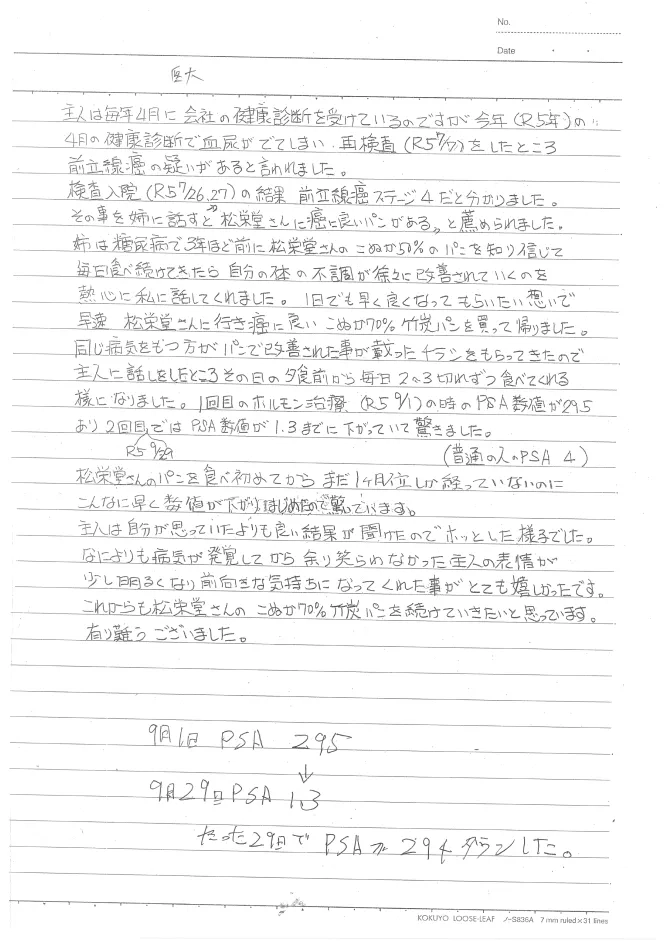 No.
Date ・ ・
医大
主人は毎年4月に会社の健康診断を受けているのですが今年(R5年)の
4月の健康診断で血尿がでてしまい、再検査(R5 7/7)をしたところ
前立線癌の疑いがあると言われました。
検査入院(R5 7/26.27)の結果 前立線癌ステージ4だと分かりました。
その事を姉に話すと〝松栄堂さんに癌に良いパンがある〟と薦められました。
姉は糖尿病で3年ほど前に松栄堂さんのこぬか50%のパンを知り信じて
毎日食べ続けてきたら 自分の体の不調が徐々に改善されていくのを
熱心に私に話してくれました。1日でも早く良くなってもらいたい想いで
早速 松栄堂さんに行き癌に良い こぬか70%竹炭パンを買って帰りました。
同じ病気をもつ方がパンで改善された事が載ったチラシをもらってきたので
主人に話しをしたところその日の夕食前から毎日2〜3切れずつ食べてくれる
様になりました。1回目のホルモン治療(R5 9/1)の時のPSA数値が295
あり2回目では PSA数値が1.3までに下がっていて驚きました。
R5 9/29
(普通の人のPSA 4)
松栄堂さんのパンを食べ初めてから まだ1ヶ月位しか経っていないのに
こんなに早く数値が下がりはじめたので驚いています。
主人は自分が思っていたよりも良い結果が聞けたのでホッとした様子でした。
なによりも病気が発覚してから余り笑らわなかった主人の表情が
少し明るくなり前向きな気持ちになってくれた事がとても嬉しかったです。
これからも松栄堂さんの こぬか70%竹炭パンを続けていきたいと思っています。
有り難うございました。
9月1日 PSA 295
↓
9月29日PSA 1.3
たった29日で PSAが294ダウンした。
KOKUYO LOOSE-LEAF ノ-S836A 7 mm ruled×31 lines